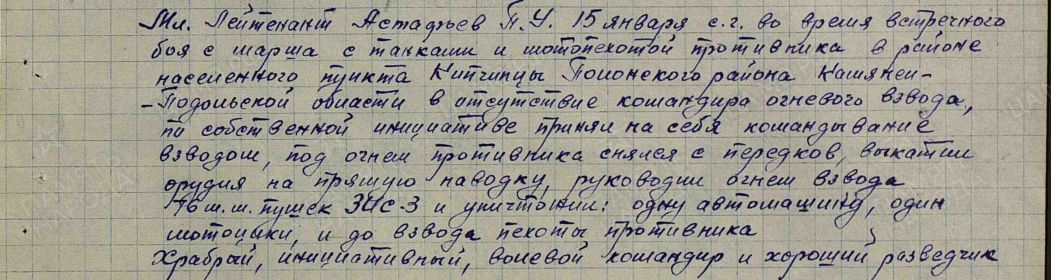 Мл. Лейтенант Астафьев П.У. 15 января с.г. во время встречного
боя с марша с танками и мотопехотой противника в районе
населенного пункта Кипчинцы Полонского района Камянец-
-Подольской области в отсутствие командира огневого взвода,
по собственной инициативе принял на себя командывание
взводом, под огнем противника снялся с передков, выкатил
орудия на прямую наводку, руководил огнем взвода
76 м.м. пушек ЗИС-3 и уничтожил: одну автомашину, один
мотоцикл, и до взвода пехоты противника
Храбрый, инициативный, волевой командир и хороший разведчик